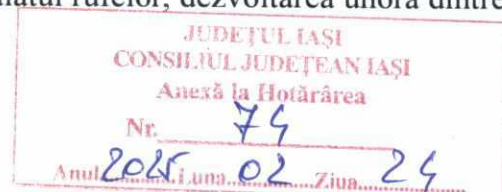 rufelor, dezvoltarea unora dintre
JUDEŢUL IAŞI
CONSILIUL JUDEŢEAN IAŞI
Anexă la Hotărârea
Nr. 74
Anul 2025 Luna 02 Ziua 24